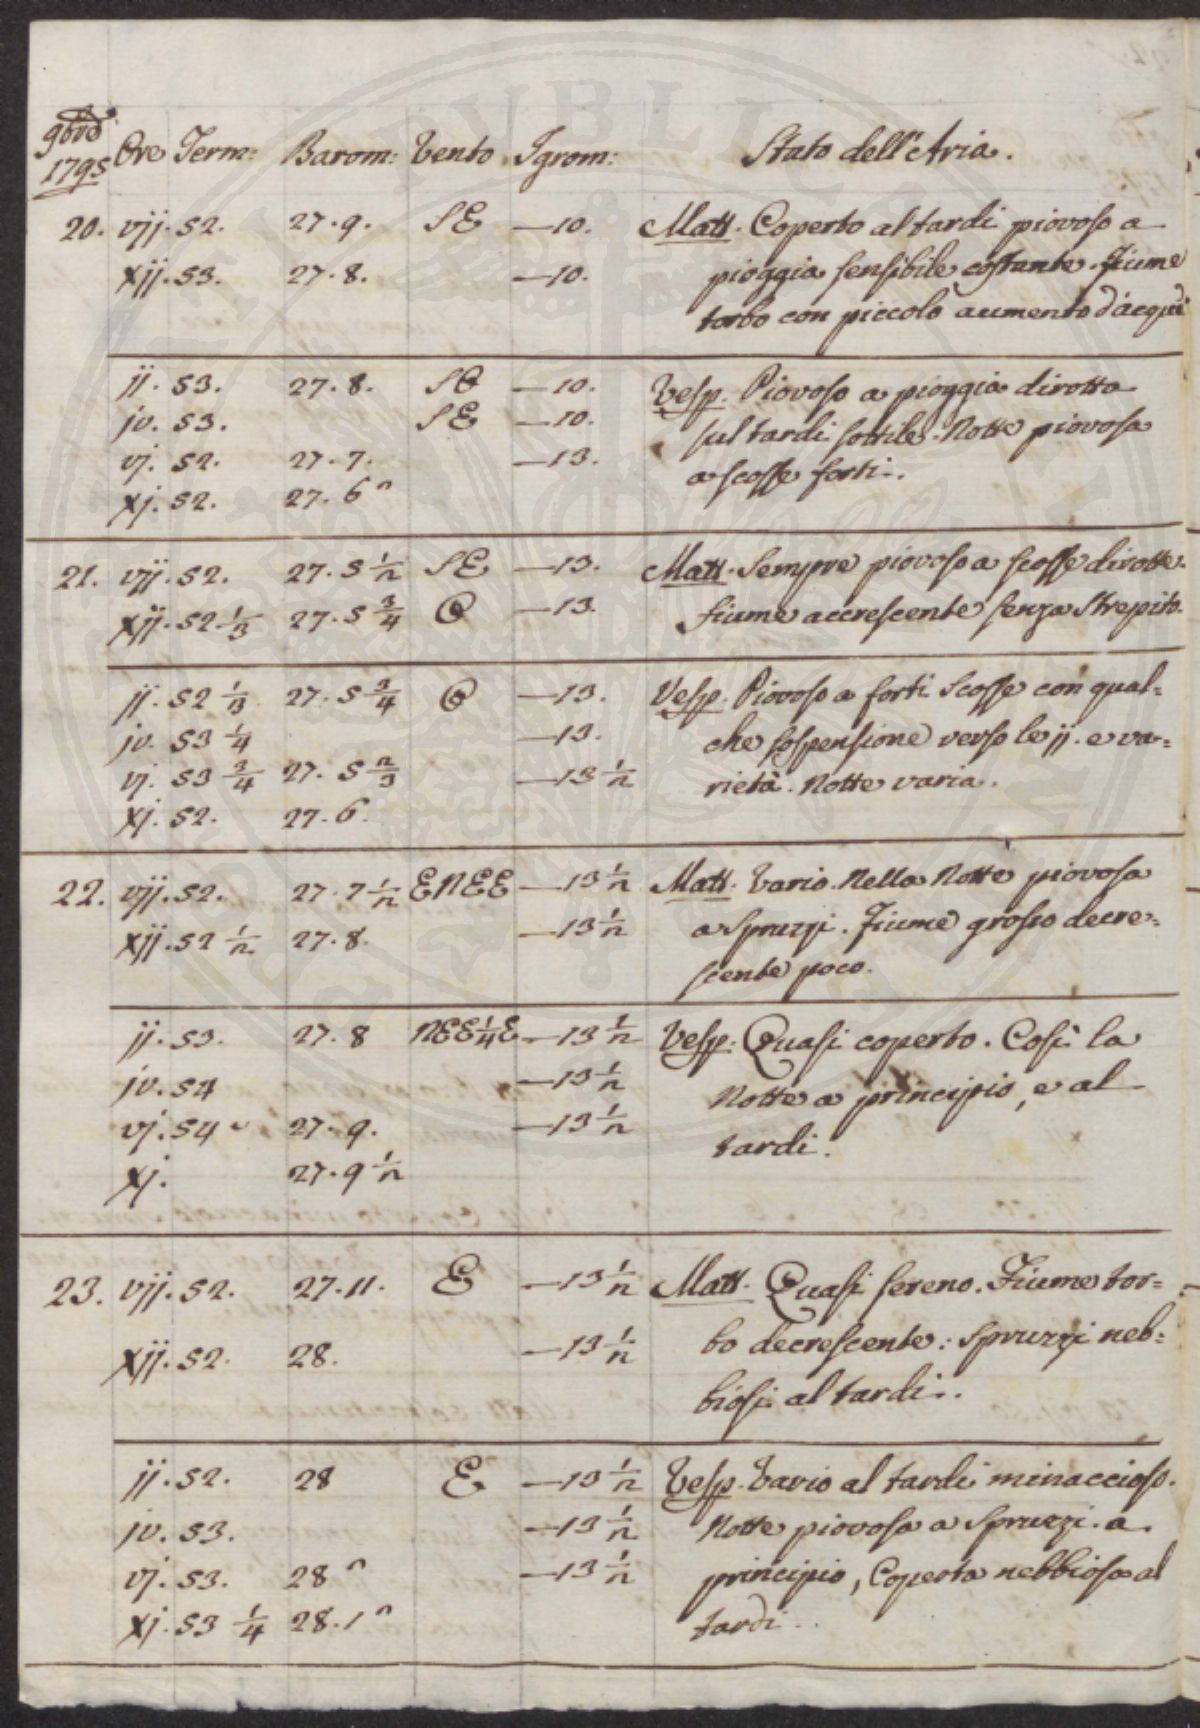 9bre
1795
Ore Term: Barom: Vento Igrom: Stato dell'Aria.
20. vij. 52. 27.9. SE —10. Matt. Coperto al tardi piovoso a
xij. 53. 27.8. —10. pioggia sensibile costante. Fiume
torbo con piccolo aumento d'acqua
ij. 53. 27.8. SO —10. Vesp. Piovoso a pioggia dirotta
iv. 53. SE —10. sul tardi sottile. Notte piovosa
vj. 52. 27.7. —13. a scosse forti.
xj. 52. 27.6^n
21. vij. 52. 27.5 1/2 SE —13. Matt. Sempre piovoso a scosse dirotte.
xij. 52 1/3 27.5 3/4 O —13. fiume accrescente senza strepito.
ij. 52 1/3 27.5 3/4 O —13. Vesp. Piovoso a forti scosse con qual=
iv. 53 1/4 —13. che sospensione verso le ij. e va=
vj. 53 3/4 27.5 2/3 —13 1/2 rietà. Notte varia.
xj. 52. 27.6.
22. vij. 52. 27.7 1/2 ENEE —13 1/2 Matt. Vario. Nella Notte piovosa
xij. 52 1/2 27.8. —13 1/2 a Spruzzi. Fiume grosso decre=
scente poco.
ij. 53. 27.8 NEE 1/4 E —13 1/2 Vesp. Quasi coperto. Così la
iv. 54 —13 1/2 Notte a principio, e al
vj. 54 27.9. —13 1/2 tardi.
xj. 27.9 1/2
23. vij. 52. 27.11. E —13 1/2 Matt. Quasi sereno. Fiume tor=
xij. 52. 28. —13 1/2 bo decrescente: Spruzzi neb=
biosi al tardi.
ij. 52. 28 E —13 1/2 Vesp. Vario al tardi minaccioso.
iv. 53. —13 1/2 Notte piovosa a Spruzzi. a
vj. 53. 28^n —13 1/2 principio, Coperta nebbiosa al
xj. 53 1/4 28.1^n tardi.